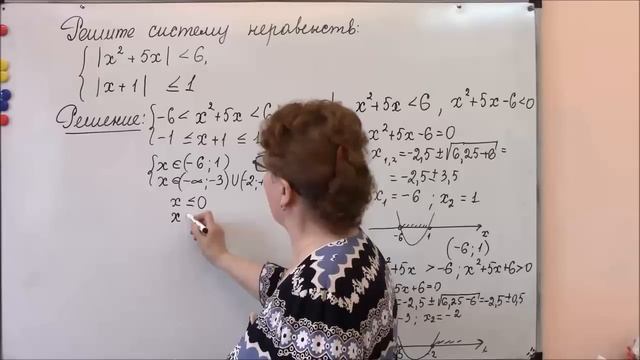 Решите систему неравенств:
{ |x² + 5x| < 6,
|x + 1| ≤ 1
Решение: { -6 < x² + 5x < 6
-1 ≤ x + 1 ≤ 1
{ x ∈ (-6; 1)
x ∈ (-∞; -3) ∪ (-2; +
x ≤ 0
x
x² + 5x < 6, x² + 5x - 6 < 0
x² + 5x - 6 = 0
x₁,₂ = -2,5 ± √6,25 + 6 =
= -2,5 ± 3,5
x₁ = -6; x₂ = 1
-6 1 x
(-6; 1)
+ 5x > -6; x² + 5x + 6 > 0
5x + 6 = 0
= -2,5 ± √6,25 - 6 = -2,5 ± 0,5
-3; x₂ = -2
-2